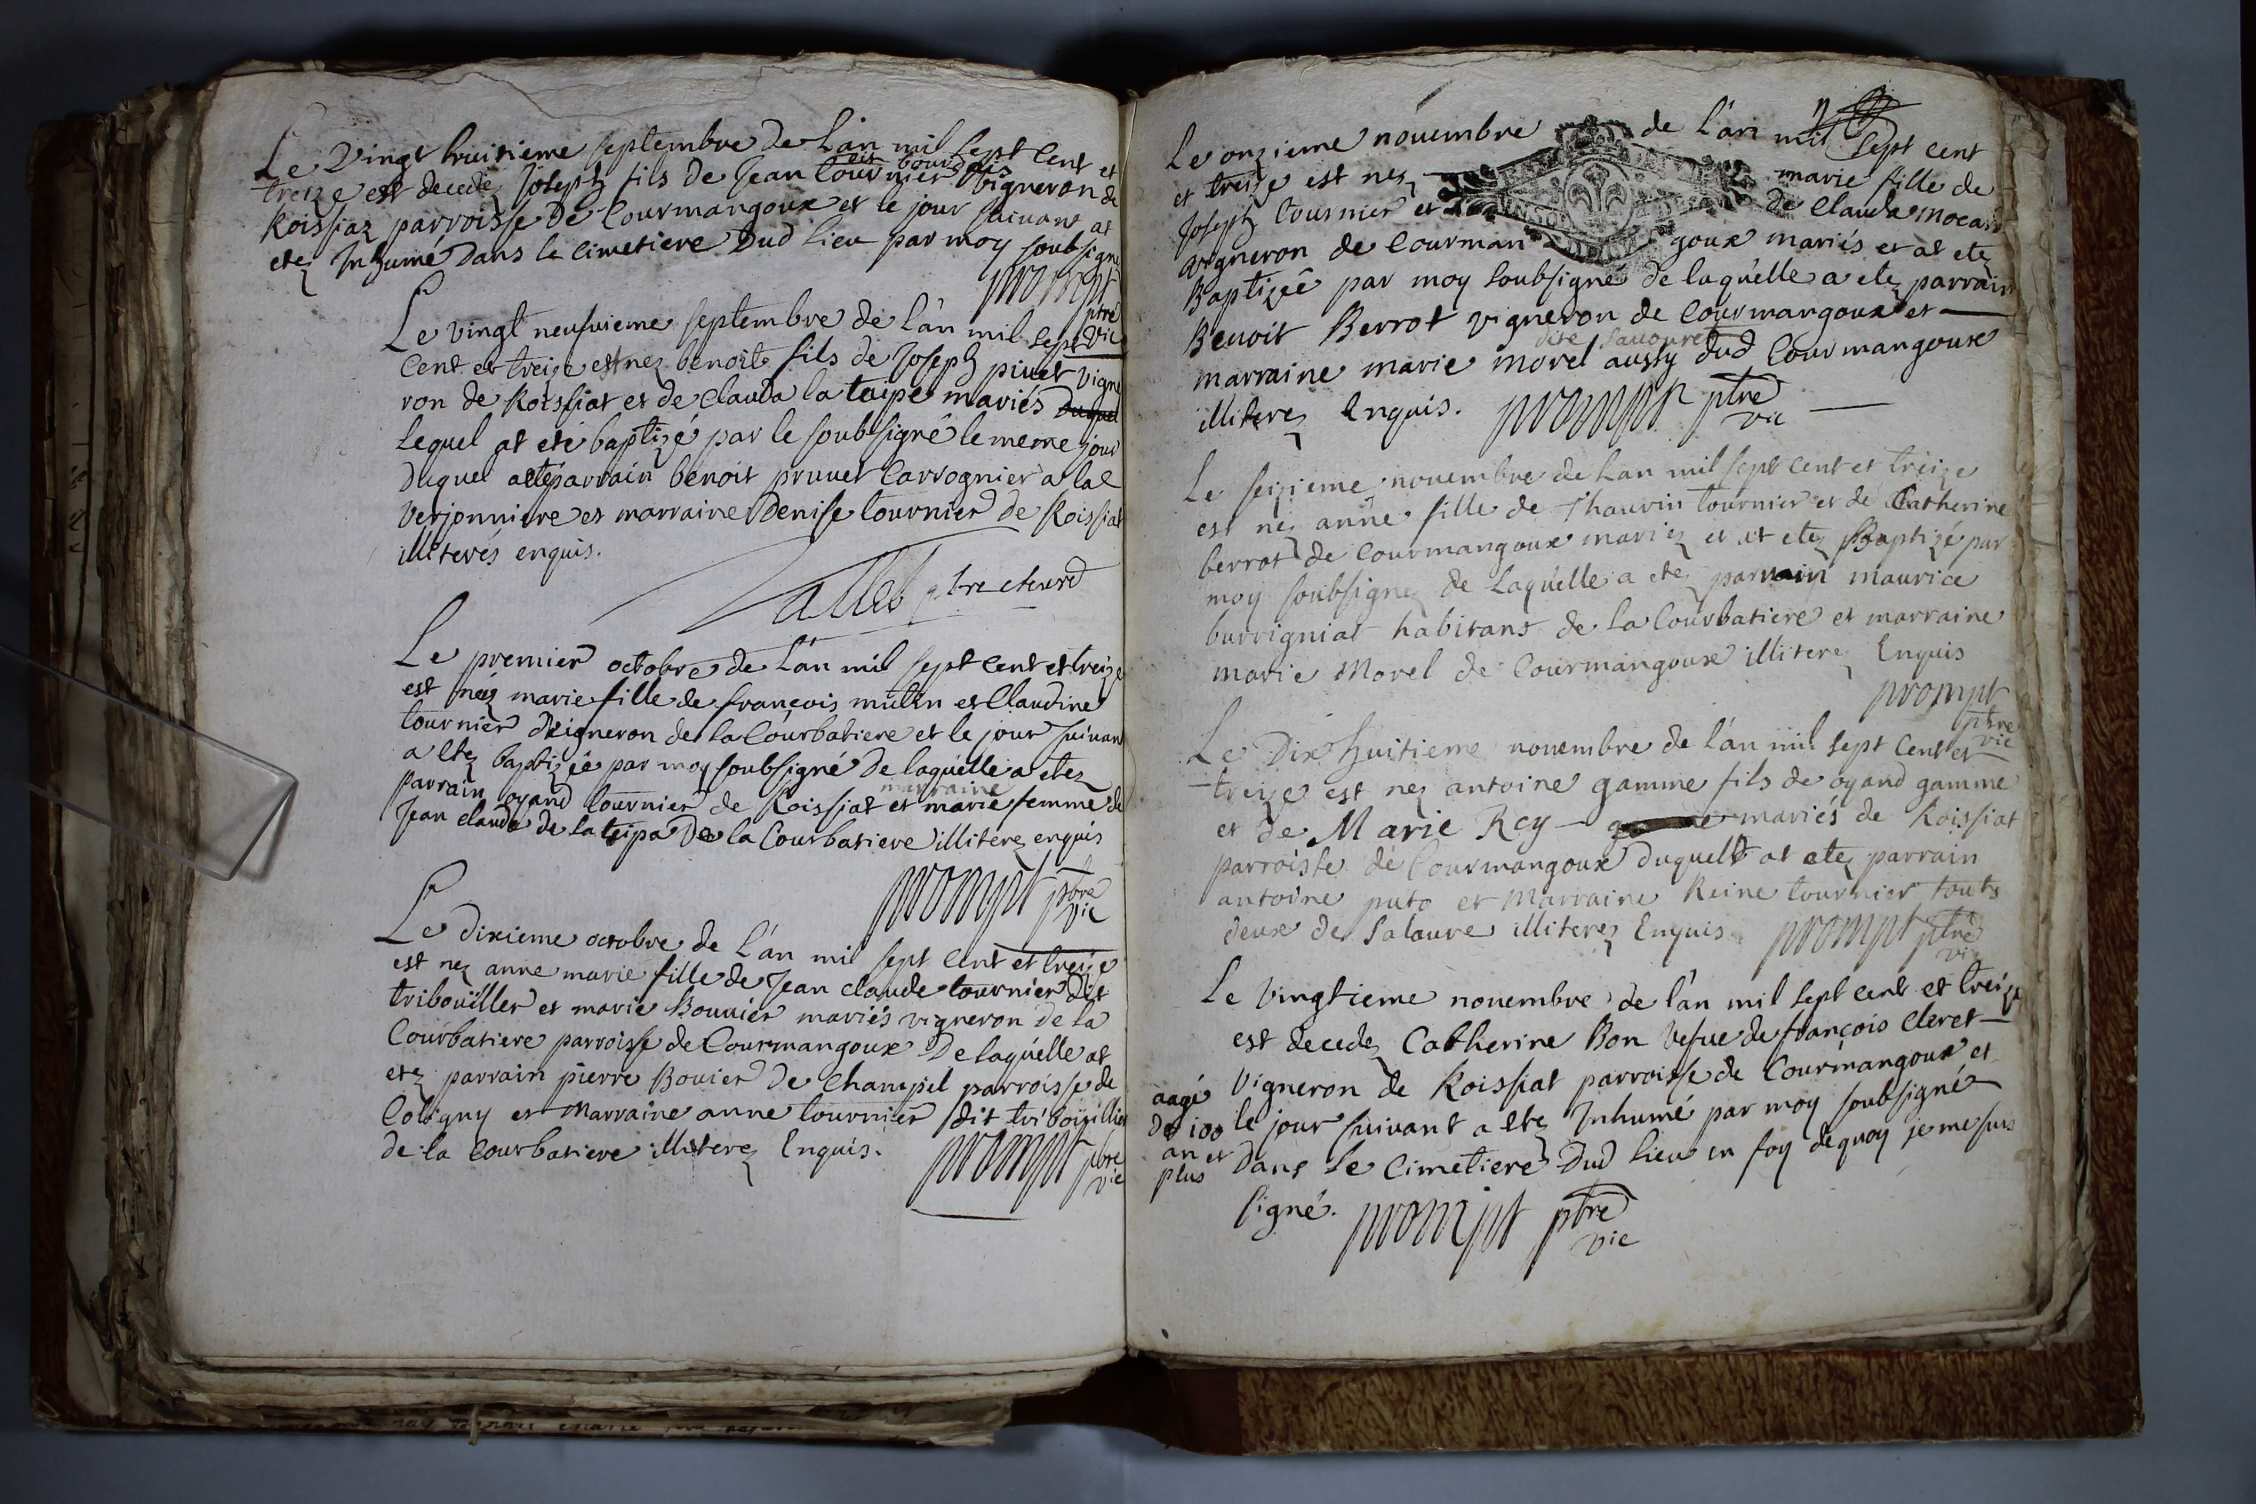 Le Vingt huitieme septembre de L'an mil sept Cent et
treize est decedez Joseph fils de Jean tournier dit bourdois vigneron de
Roissiaz parroisse De Courmangoux et le jour suivant at
etez Inhumé Dans le Cimetiere Dud lieu par moy soubsigné
prompt ptre
vic
Le vingt neufuieme septembre de L'an mil sept
Cent et treize est nez benoit fils de Joseph pivet vigne
ron de Roissiat et de Clauda la taipe mariés Duquel
Lequel at eté baptizé par le soubsigné le meme jour
duquel a eté parrain benoit pruuet Carrognier a la
Verjonniere et marraine Denise tournier de Roissiat
illiterés enquis.
ptre
Le premier octobre de L'an mil sept Cent et treize
est néz marie fille de françois and Claudine
tournier vigneron de la Courbatiere et le jour suivant
a etez baptizée par moy soubsigné de laquelle a etez
parrain oyand tournier de Roissiat et marraine marie femme de
Jean Claude de la teipa De la Courbatiere illiterez enquis
prompt ptre
vic
Le dixieme octobre de L'an mil sept Cent et treize
est nez anne marie fille de Jean Claude tournier dit
tribouïller et marie Bouuier mariés vigneron de la
Courbatiere parroisse de Courmangoux De laquelle at
etez parrain pierre Bouier de Champel parroisse de
Coligny et Marraine anne tournier dit tribouillier
de la Courbatiere illiterez Enquis.
prompt ptre
vic
Le onzieme nouembre de L'an mil sept cent
et treize est nez marie fille de
Joseph tournier et de Clauda mocari
vigneron de Courmangoux mariés et at etez
Baptizée par moy soubsigné de laquelle a etez parrain
Benoit Berrot vigneron de Courmangoux et
marraine marie morel dite Sauouret aussy dud Courmangoux
illiterez Enquis. prompt ptre
vic
Le seizieme nouembre de L'an mil sept cent et treize
est nez anne fille de Thauvin tournier et de Catherine
berrot de Courmangoux mariez et at etez Baptizé par
moy soubsignez de Laquelle a etez parrain maurice
burrigniat habitant de la Courbatiere et marraine
marie Morel de Courmangoux illiterez Enquis
prompt
ptre
vic
Le Dix huitieme nouembre de l'an mil sept Cent et
treize est nez antoine gamme fils de oyand gamme
et de Marie Rey mariés de Roissiat
parroisse de Courmangoux duquelt at etez parrain
antoine puto et Marraine Reine tournier touts
deux de Salaure illiterez Enquis prompt ptre
vic
Le Vingtieme nouembre de l'an mil sept cent et treize
est decedez Catherine Bon vefue de françois Cleret
Vigneron de Roissiat parroisse de Courmangoux et
le jour suivant a etez Inhumé par moy soubsigné
Dans le Cimetiere Dud lieu en foy dequoy je me suis
signé. prompt ptre
vic
aagé
de 100
an et
plus